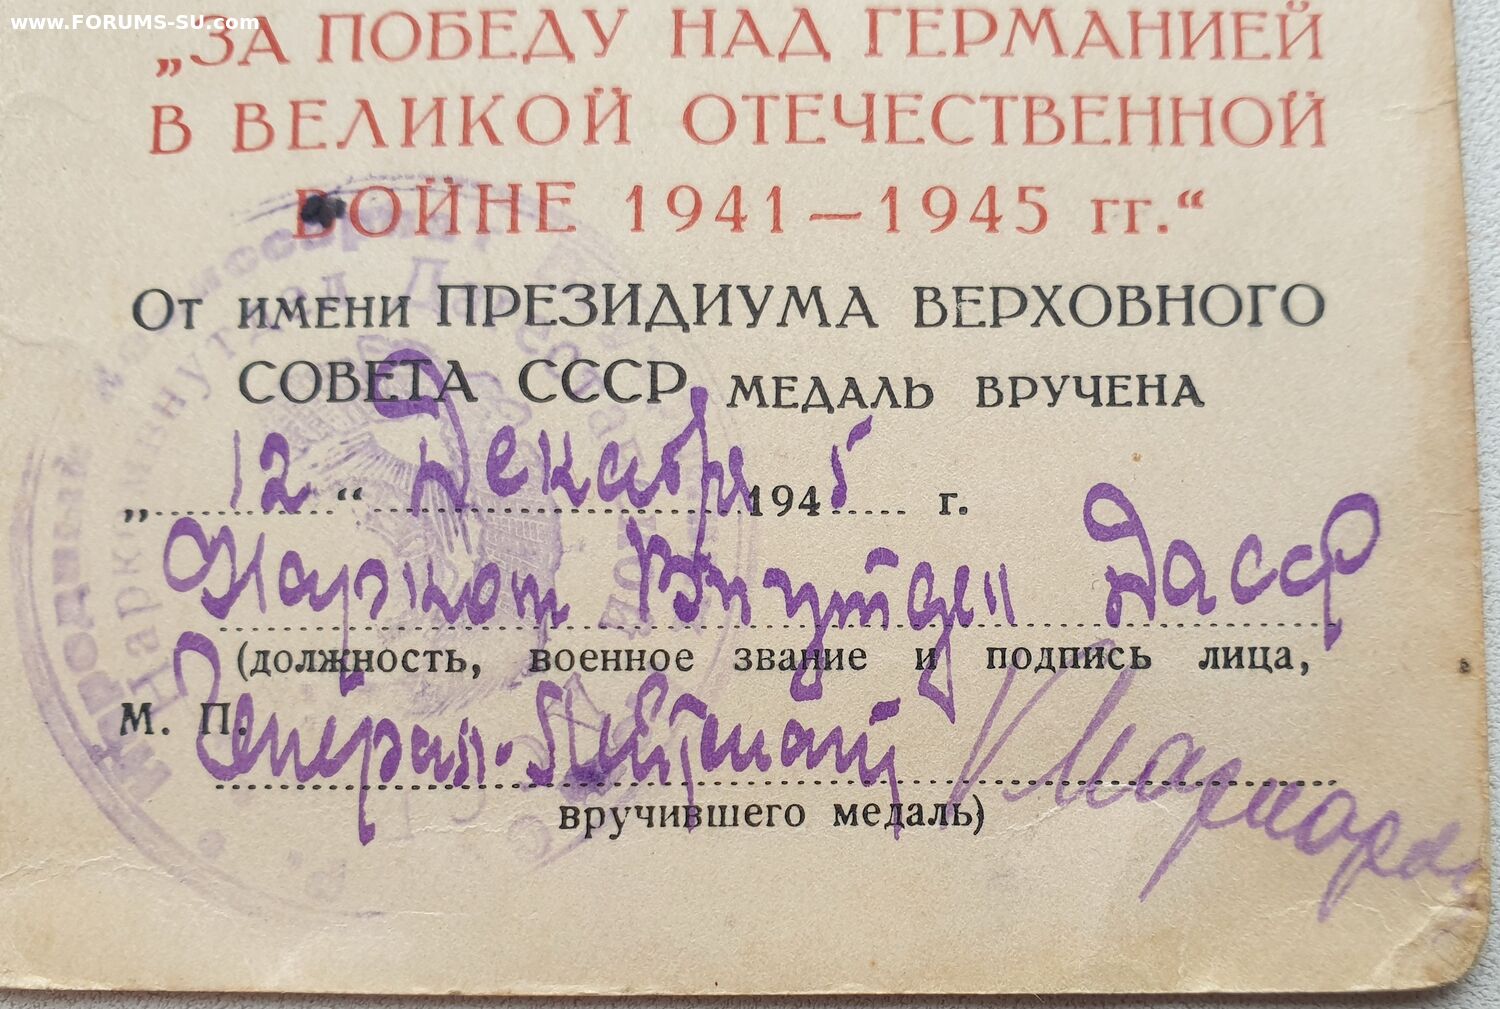 www.FORUMS-SU.com
„ЗА ПОБЕДУ НАД ГЕРМАНИЕЙ
В ВЕЛИКОЙ ОТЕЧЕСТВЕННОЙ
ВОЙНЕ 1941—1945 гг.“
От имени ПРЕЗИДИУМА ВЕРХОВНОГО
СОВЕТА СССР МЕДАЛЬ ВРУЧЕНА
„12“ Декабря 1945 г.
Нарком Внутдел ДАССР
(должность, военное звание и подпись лица,
М. П. Генерал-Лейтенант
вручившего медаль)